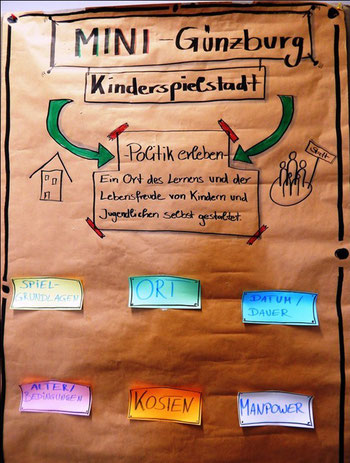 MINI - Günzburg
Kinderspielstadt
Politik erleben-
Ein Ort des Lernens und der
Lebensfreude von Kindern und
Jugendlichen selbst gestaltet.
Stadt
SPIEL-
GRUNDLAGEN
ORT
DATUM/
DAUER
ALTER/
BEDINGUNGEN
KOSTEN
MANPOWER